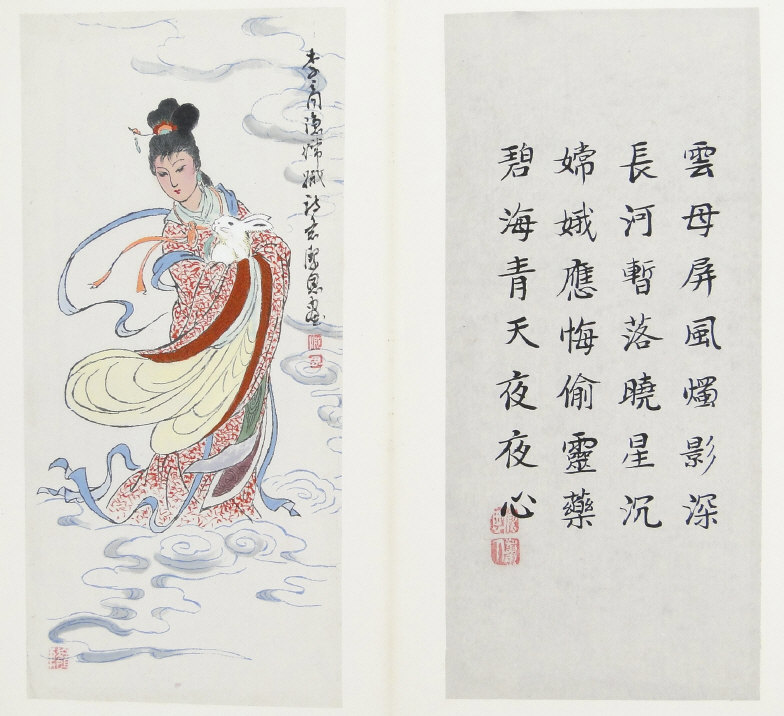 雲母屏風燭影深
長河暫落曉星沉
嫦娥應悔偷靈藥
碧海青天夜夜心
李商隱嫦娥詩意